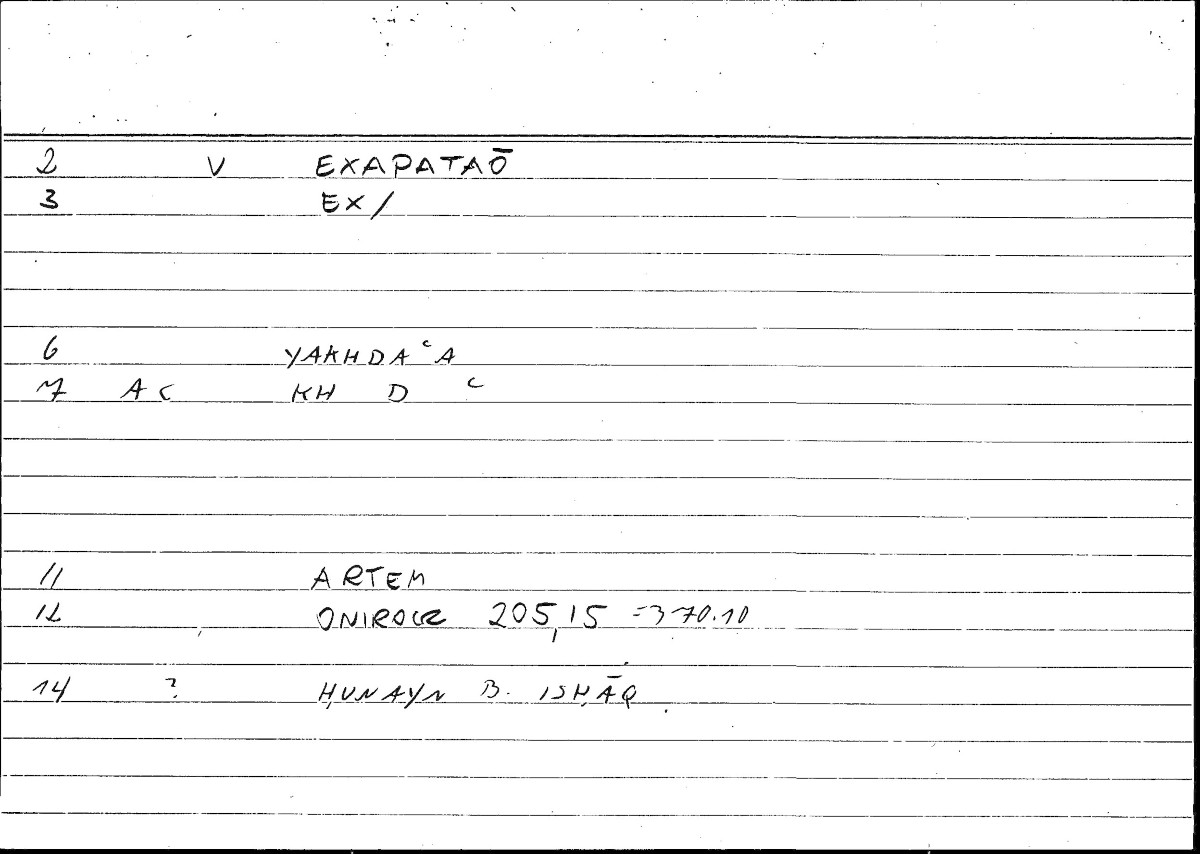 2 V EXAPATAŌ
3 EX/
6 YAKHDAʿA
7 AC KH D ʿ
11 ARTEM
12 ONIROCR 205,15 =370.10
14 ? ḤUNAYN B. ISḤĀQ